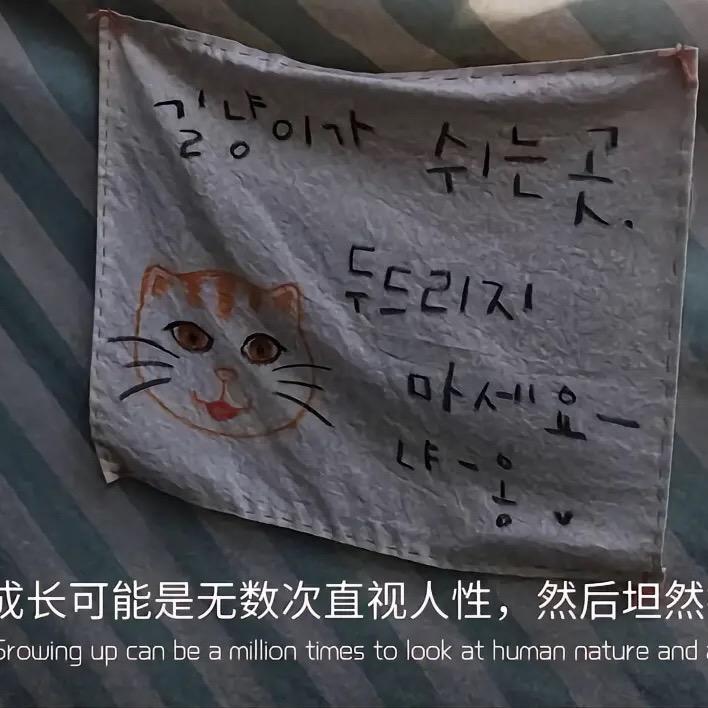 길냥이가 쉬는 곳.
두드리지
마세요~
냐-옹
成长可能是无数次直视人性，然后坦然
Growing up can be a million times to look at human nature and